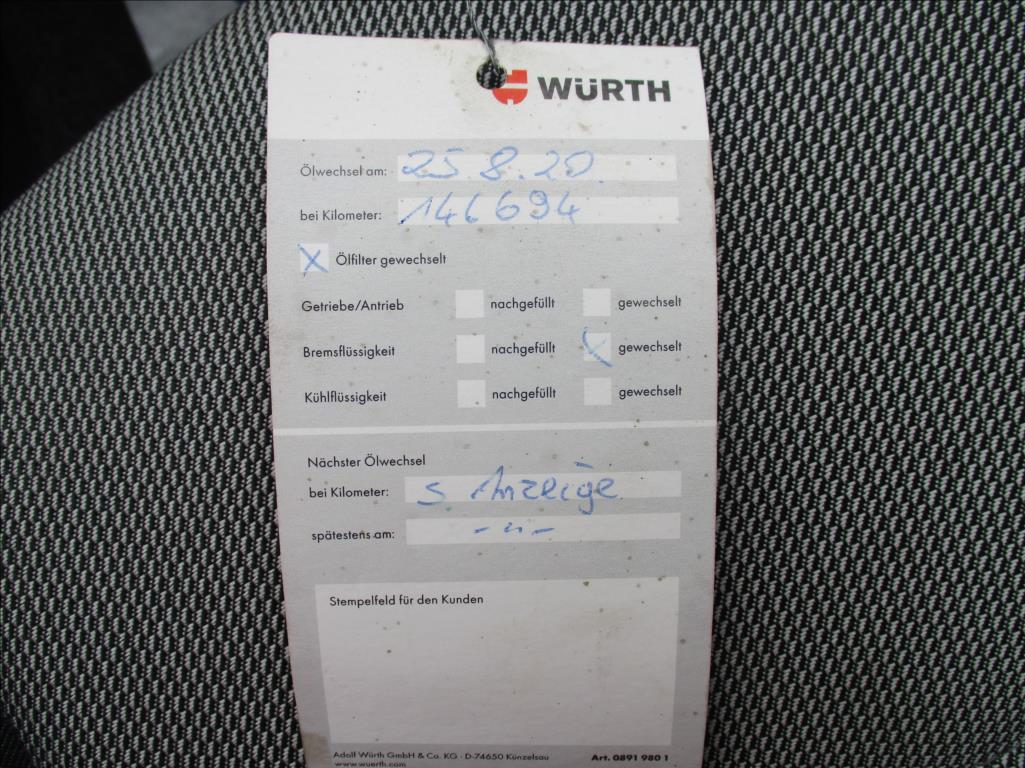 WÜRTH
Ölwechsel am: 25.8.20
bei Kilometer: 146694
X Ölfilter gewechselt
Getriebe/Antrieb nachgefüllt gewechselt
Bremsflüssigkeit nachgefüllt X gewechselt
Kühlflüssigkeit nachgefüllt gewechselt
Nächster Ölwechsel
bei Kilometer: s Anzeige
spätestens am: -"-
Stempelfeld für den Kunden
Adolf Würth GmbH & Co. KG · D-74650 Künzelsau Art. 0891 980 1
www.wuerth.com